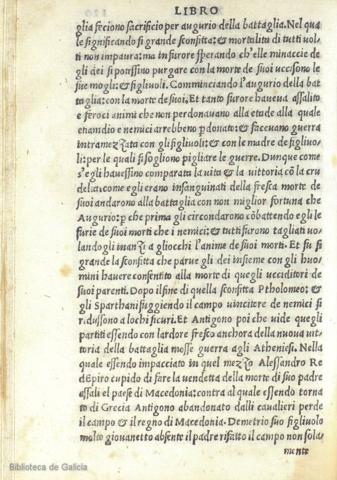 LIBRO
glia feciono sacrificio per augurio della battaglia. Nel qua
le significando si grande sconfitta: & mortalita di tutti vol
ti non impaura: ma in furore sperando ch'elle minaccie de
gli dei si potessino purgare con la morte de suoi uccisono le
sue mogli: & figliuoli. Comminciando l'augurio della bat
taglia: con la morte de suoi. Et tanto furore haueua assalito
e feroci animi che non perdonauano alla etade alla quale
ehamdio e nemici arrebbeno pdonato: & faceuano guerra
intramezzata con gli figliuoli: & con le madre de figliuo
li: per le quali si sogliono pigliare le guerre. Dunque come
s'egli hauessino comparata la vita & la vittoria cõ la cru
delta: come egli erano insanguinati della fresca morte de
suoi andarono alla battaglia con non miglior fortuna che
Augurio: p che prima gli circondarono cõbattendo egli le
furie de suoi morti che i nemici: & tutti furono tagliati uo
landogli inanzi a gliocchi l'anime de suoi morti. Et fu si
grande la sconfitta che parue gli dei insieme con gli huo
mini hauere consentito alla morte di quegli ucciditori de
suoi parenti. Dopo il fine di quella sconfitta Ptholomeo: &
gli Sparthani fuggiendo il campo uincitore de nemici si
ridussono a lochi sicuri. Et Antigono poi che uide quegli
partiti essendo con lardore fresco anchora della nuoua uit
toria della battaglia mosse guerra agli Atheniesi. Nella
quale essendo impacciato in quel mezzo Alessandro Re
d'Epiro cupido di fare la vendetta della morte di suo padre
assali el paese di Macedonia: contra al quale essendo torna
to di Grecia Antigono abandonato dalli caualieri perde
il campo & il regno di Macedonia. Demetrio suo figliuolo
molto giouanetto absente il padre rifatto il campo non sola
mente
Biblioteca de Galicia